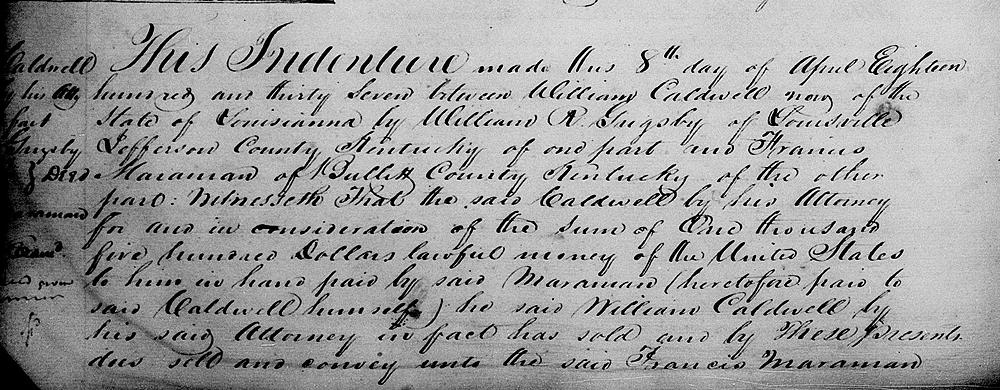 This Indenture made this 8th day of April Eighteen
hundred and thirty Seven between William Caldwell now of the
State of Louisianna by William R. Grigsby of Louisville
Jefferson County Kentucky of one part and Francis
Maraman of Bullett County Kentucky of the other
part: Witnesseth That the said Caldwell by his Attorney
for and in consideration of the Sum of One thousand
five hundred Dollars lawful money of the United States
to him in hand paid by said Maraman (heretofore paid to
said Caldwell himself) he said William Caldwell by
his said Attorney in fact has sold and by These presents
does sell and convey unto the said Francis Maraman
Caldwell
by his Atty
fact
Grigsby
} Deed
Maraman